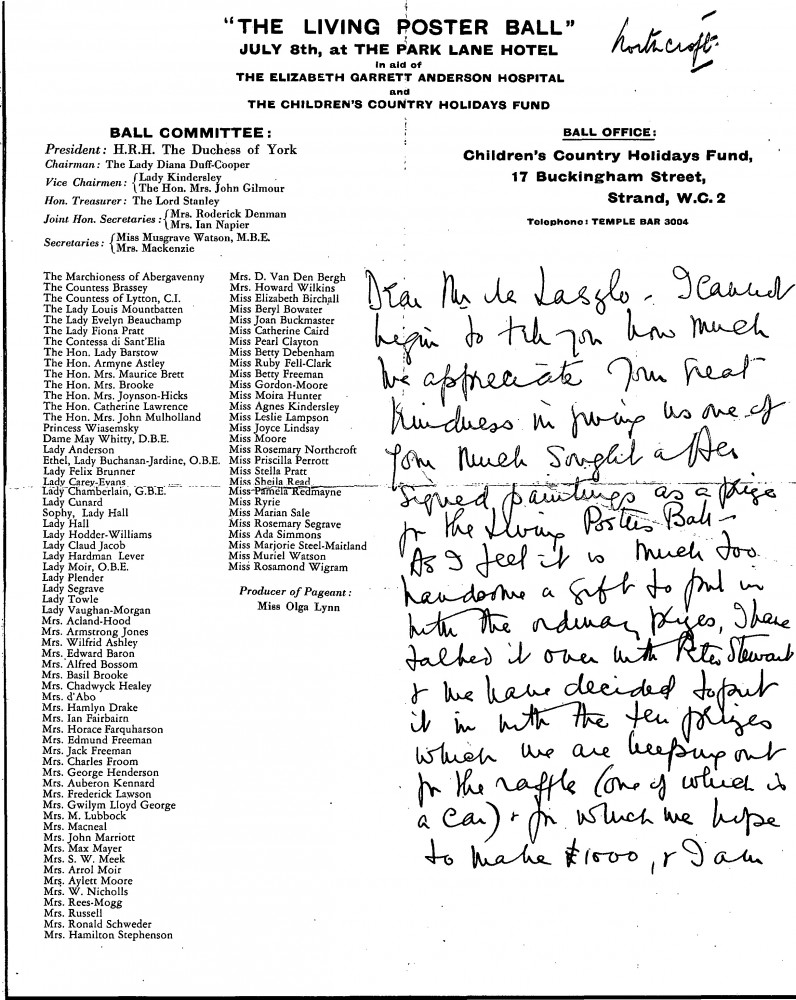 "THE LIVING POSTER BALL"
JULY 8th, at THE PARK LANE HOTEL
In aid of
THE ELIZABETH GARRETT ANDERSON HOSPITAL
and
THE CHILDREN'S COUNTRY HOLIDAYS FUND
Northcroft
BALL COMMITTEE:
President: H.R.H. The Duchess of York
Chairman: The Lady Diana Duff-Cooper
Vice Chairmen: {Lady Kindersley
{The Hon. Mrs. John Gilmour
Hon. Treasurer: The Lord Stanley
Joint Hon. Secretaries: {Mrs. Roderick Denman
{Mrs. Ian Napier
Secretaries: {Miss Musgrave Watson, M.B.E.
{Mrs. Mackenzie
BALL OFFICE:
Children's Country Holidays Fund,
17 Buckingham Street,
Strand, W.C. 2
Telephone: TEMPLE BAR 3004
The Marchioness of Abergavenny
The Countess Brassey
The Countess of Lytton, C.I.
The Lady Louis Mountbatten
The Lady Evelyn Beauchamp
The Lady Fiona Pratt
The Contessa di Sant'Elia
The Hon. Lady Barstow
The Hon. Armyne Astley
The Hon. Mrs. Maurice Brett
The Hon. Mrs. Brooke
The Hon. Mrs. Joynson-Hicks
The Hon. Catherine Lawrence
The Hon. Mrs. John Mulholland
Princess Wiasemsky
Dame May Whitty, D.B.E.
Lady Anderson
Ethel, Lady Buchanan-Jardine, O.B.E.
Lady Felix Brunner
Lady Carey-Evans
Lady Chamberlain, G.B.E.
Lady Cunard
Sophy, Lady Hall
Lady Hall
Lady Hodder-Williams
Lady Claud Jacob
Lady Hardman Lever
Lady Moir, O.B.E.
Lady Plender
Lady Segrave
Lady Towle
Lady Vaughan-Morgan
Mrs. Acland-Hood
Mrs. Armstrong Jones
Mrs. Wilfrid Ashley
Mrs. Edward Baron
Mrs. Alfred Bossom
Mrs. Basil Brooke
Mrs. Chadwyck Healey
Mrs. d'Abo
Mrs. Hamlyn Drake
Mrs. Ian Fairbairn
Mrs. Horace Farquharson
Mrs. Edmund Freeman
Mrs. Jack Freeman
Mrs. Charles Froom
Mrs. George Henderson
Mrs. Auberon Kennard
Mrs. Frederick Lawson
Mrs. Gwilym Lloyd George
Mrs. M. Lubbock
Mrs. Macneal
Mrs. John Marriott
Mrs. Max Mayer
Mrs. S. W. Meek
Mrs. Arrol Moir
Mrs. Aylett Moore
Mrs. W. Nicholls
Mrs. Rees-Mogg
Mrs. Russell
Mrs. Ronald Schweder
Mrs. Hamilton Stephenson
Mrs. D. Van Den Bergh
Mrs. Howard Wilkins
Miss Elizabeth Birchall
Miss Beryl Bowater
Miss Joan Buckmaster
Miss Catherine Caird
Miss Pearl Clayton
Miss Betty Debenham
Miss Ruby Fell-Clark
Miss Betty Freeman
Miss Gordon-Moore
Miss Moira Hunter
Miss Agnes Kindersley
Miss Leslie Lampson
Miss Joyce Lindsay
Miss Moore
Miss Rosemary Northcroft
Miss Priscilla Perrott
Miss Stella Pratt
Miss Sheila Read
Miss Pamela Redmayne
Miss Ryrie
Miss Marian Sale
Miss Rosemary Segrave
Miss Ada Simmons
Miss Marjorie Steel-Maitland
Miss Muriel Watson
Miss Rosamond Wigram
Producer of Pageant:
Miss Olga Lynn
Dear Mr de Laszlo - I cannot
begin to tell you how much
we appreciate your great
kindness in giving us one of
your much sought after
signed paintings as a prize
for the Living Posters Ball -
As I feel it is much too
handsome a gift to put in
with the ordinary prizes, I have
talked it over with Peter Stewart
& we have decided to put
it in with the ten prizes
which we are keeping out
for the raffle (one of which is
a car) & for which we hope
to make £1000, & I am